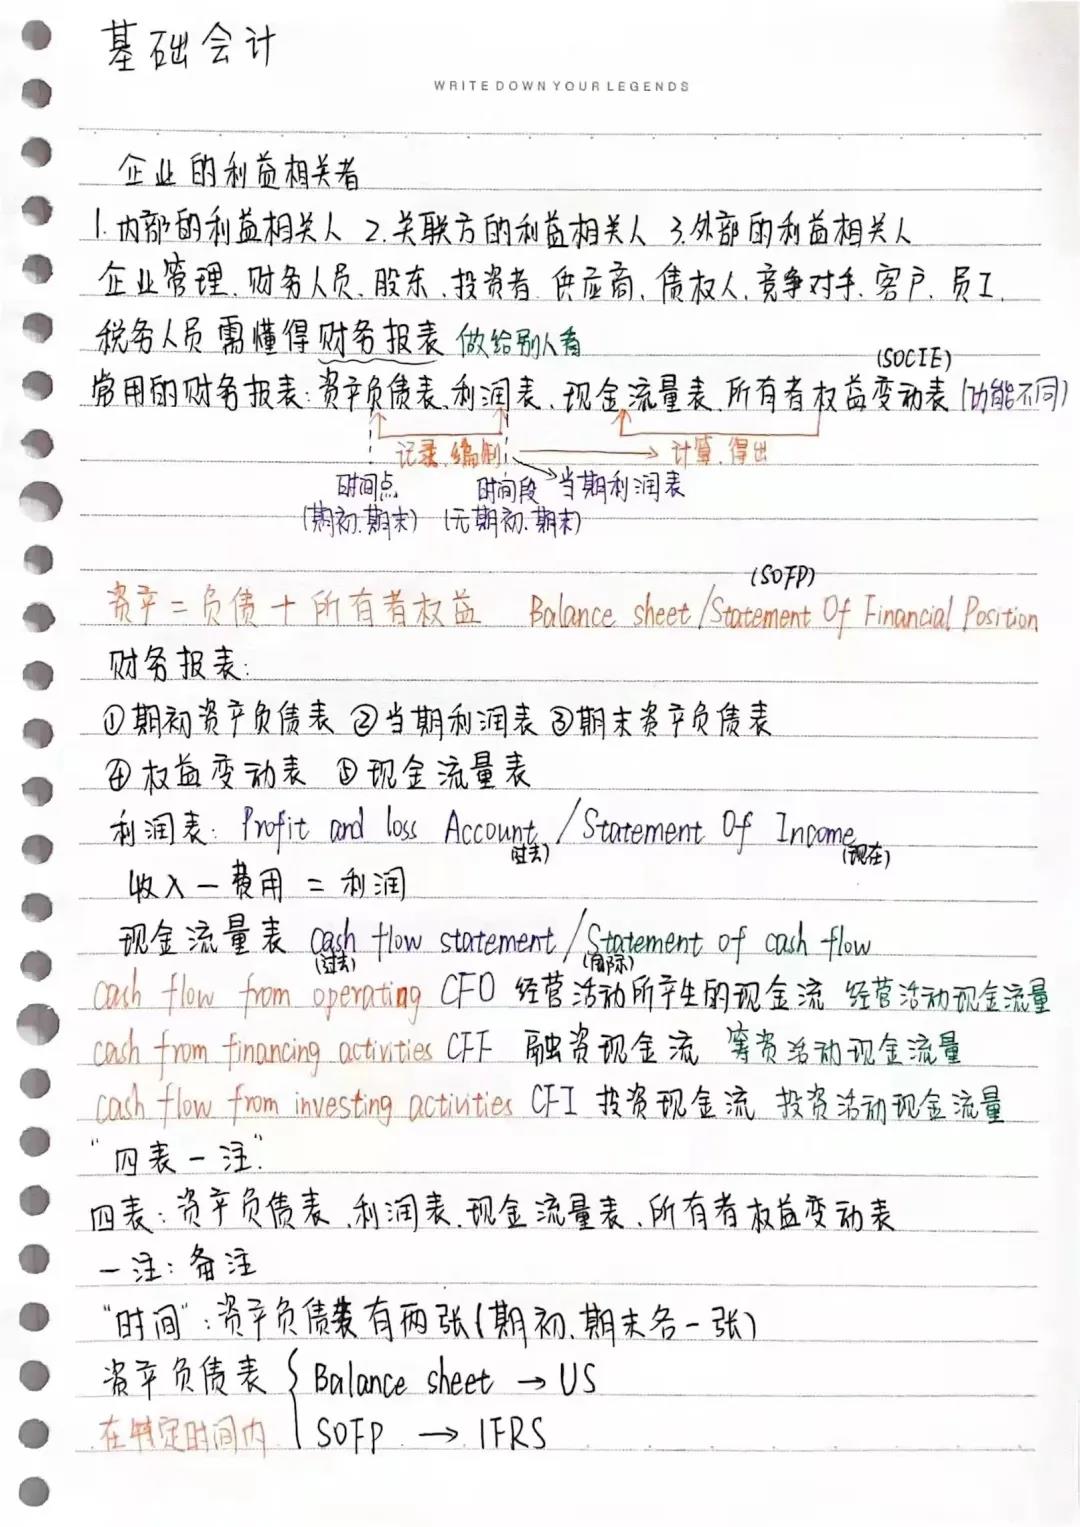 基础会计
WRITE DOWN YOUR LEGENDS
企业的利益相关者
1.内部的利益相关人 2.关联方的利益相关人 3.外部的利益相关人
企业管理、财务人员、股东、投资者、供应商、债权人、竞争对手、客户、员工、
税务人员需懂得财务报表 做给别人看
(SOCIE)
常用的财务报表:资产负债表、利润表、现金流量表、所有者权益变动表(功能不同)
记录、编制 → 计算、得出
时间点 时间段 → 当期利润表
(期初、期末) (无期初、期末)
(SOFP)
资产=负债+所有者权益 Balance sheet/Statement Of Financial Position
财务报表:
①期初资产负债表 ②当期利润表 ③期末资产负债表
④权益变动表 ⑤现金流量表
利润表: Profit and loss Account/Statement Of Income
(过去) (现在)
收入-费用=利润
现金流量表 cash flow statement/Statement of cash flow
(过去) (国际)
cash flow from operating CFO 经营活动所产生的现金流 经营活动现金流量
cash from financing activities CFF 融资现金流 筹资活动现金流量
cash flow from investing activities CFI 投资现金流 投资活动现金流量
"四表一注".
四表:资产负债表、利润表、现金流量表、所有者权益变动表
一注:备注
"时间":资产负债表有两张(期初、期末各一张)
资产负债表 { Balance sheet → US
在特定时间内 SOFP → IFRS